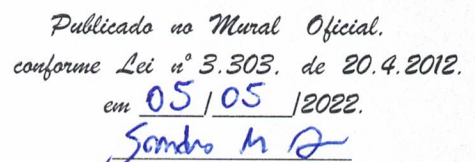 Publicado no Mural Oficial.
conforme Lei nº 3.303, de 20.4.2012.
em 05/05/2022.
Sandro M